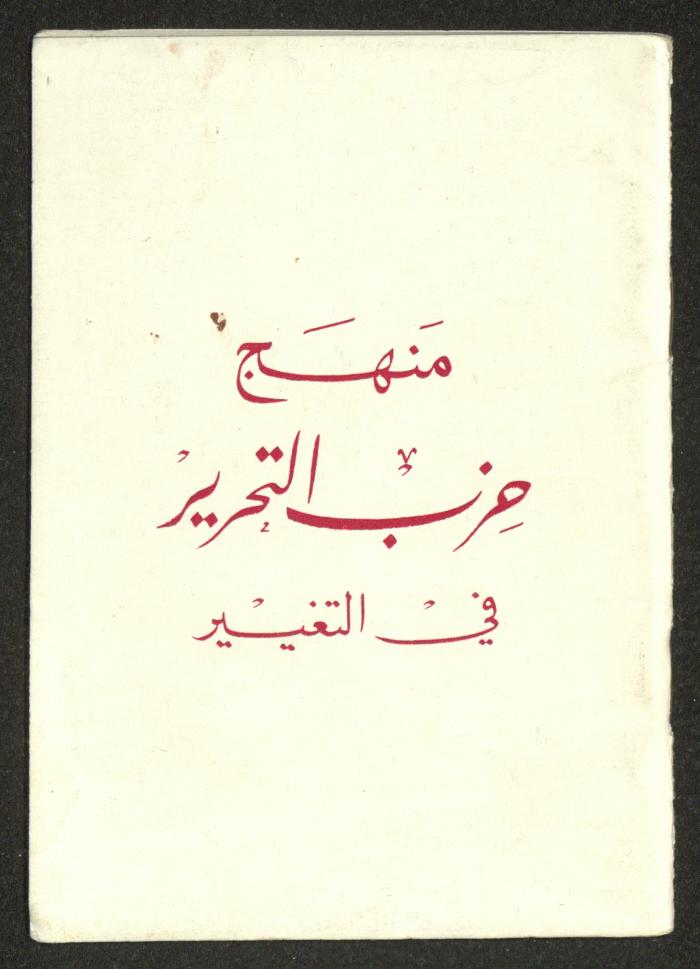 مَنهَج
حِزبْ التحريْر
فيْ التغيْير